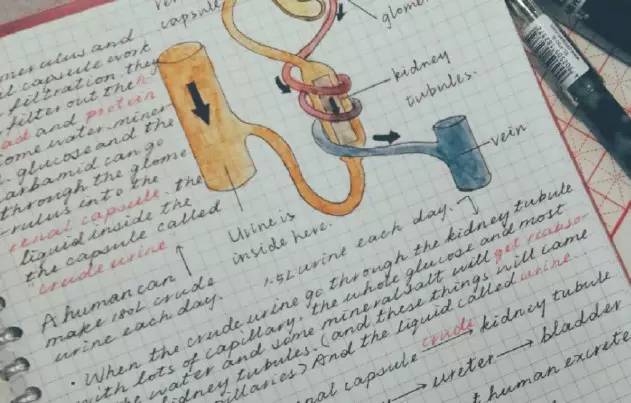 capsule
glome
merulus and
capsule work
filtration. they
filter out the
and protein
some water, miner
glucose and the
arbamid can go
through the glome
rulus into the
renal capsule. the
liquid inside the
the capsule called
"crude urine"
kidney
tubules.
vein
Urine is
inside here.
A human can
make 180L crude
urine each day.
1.5L urine each day.
· When the crude urine go through the kidney tubule
with lots of capillary, the whole glucose and most
water and some mineral salt will get reabsor
kidney tubules. (and these things will came
pillaries) And the liquid called urine.
renal capsule crude → kidney tubule
→ ureter → bladder
human excrete